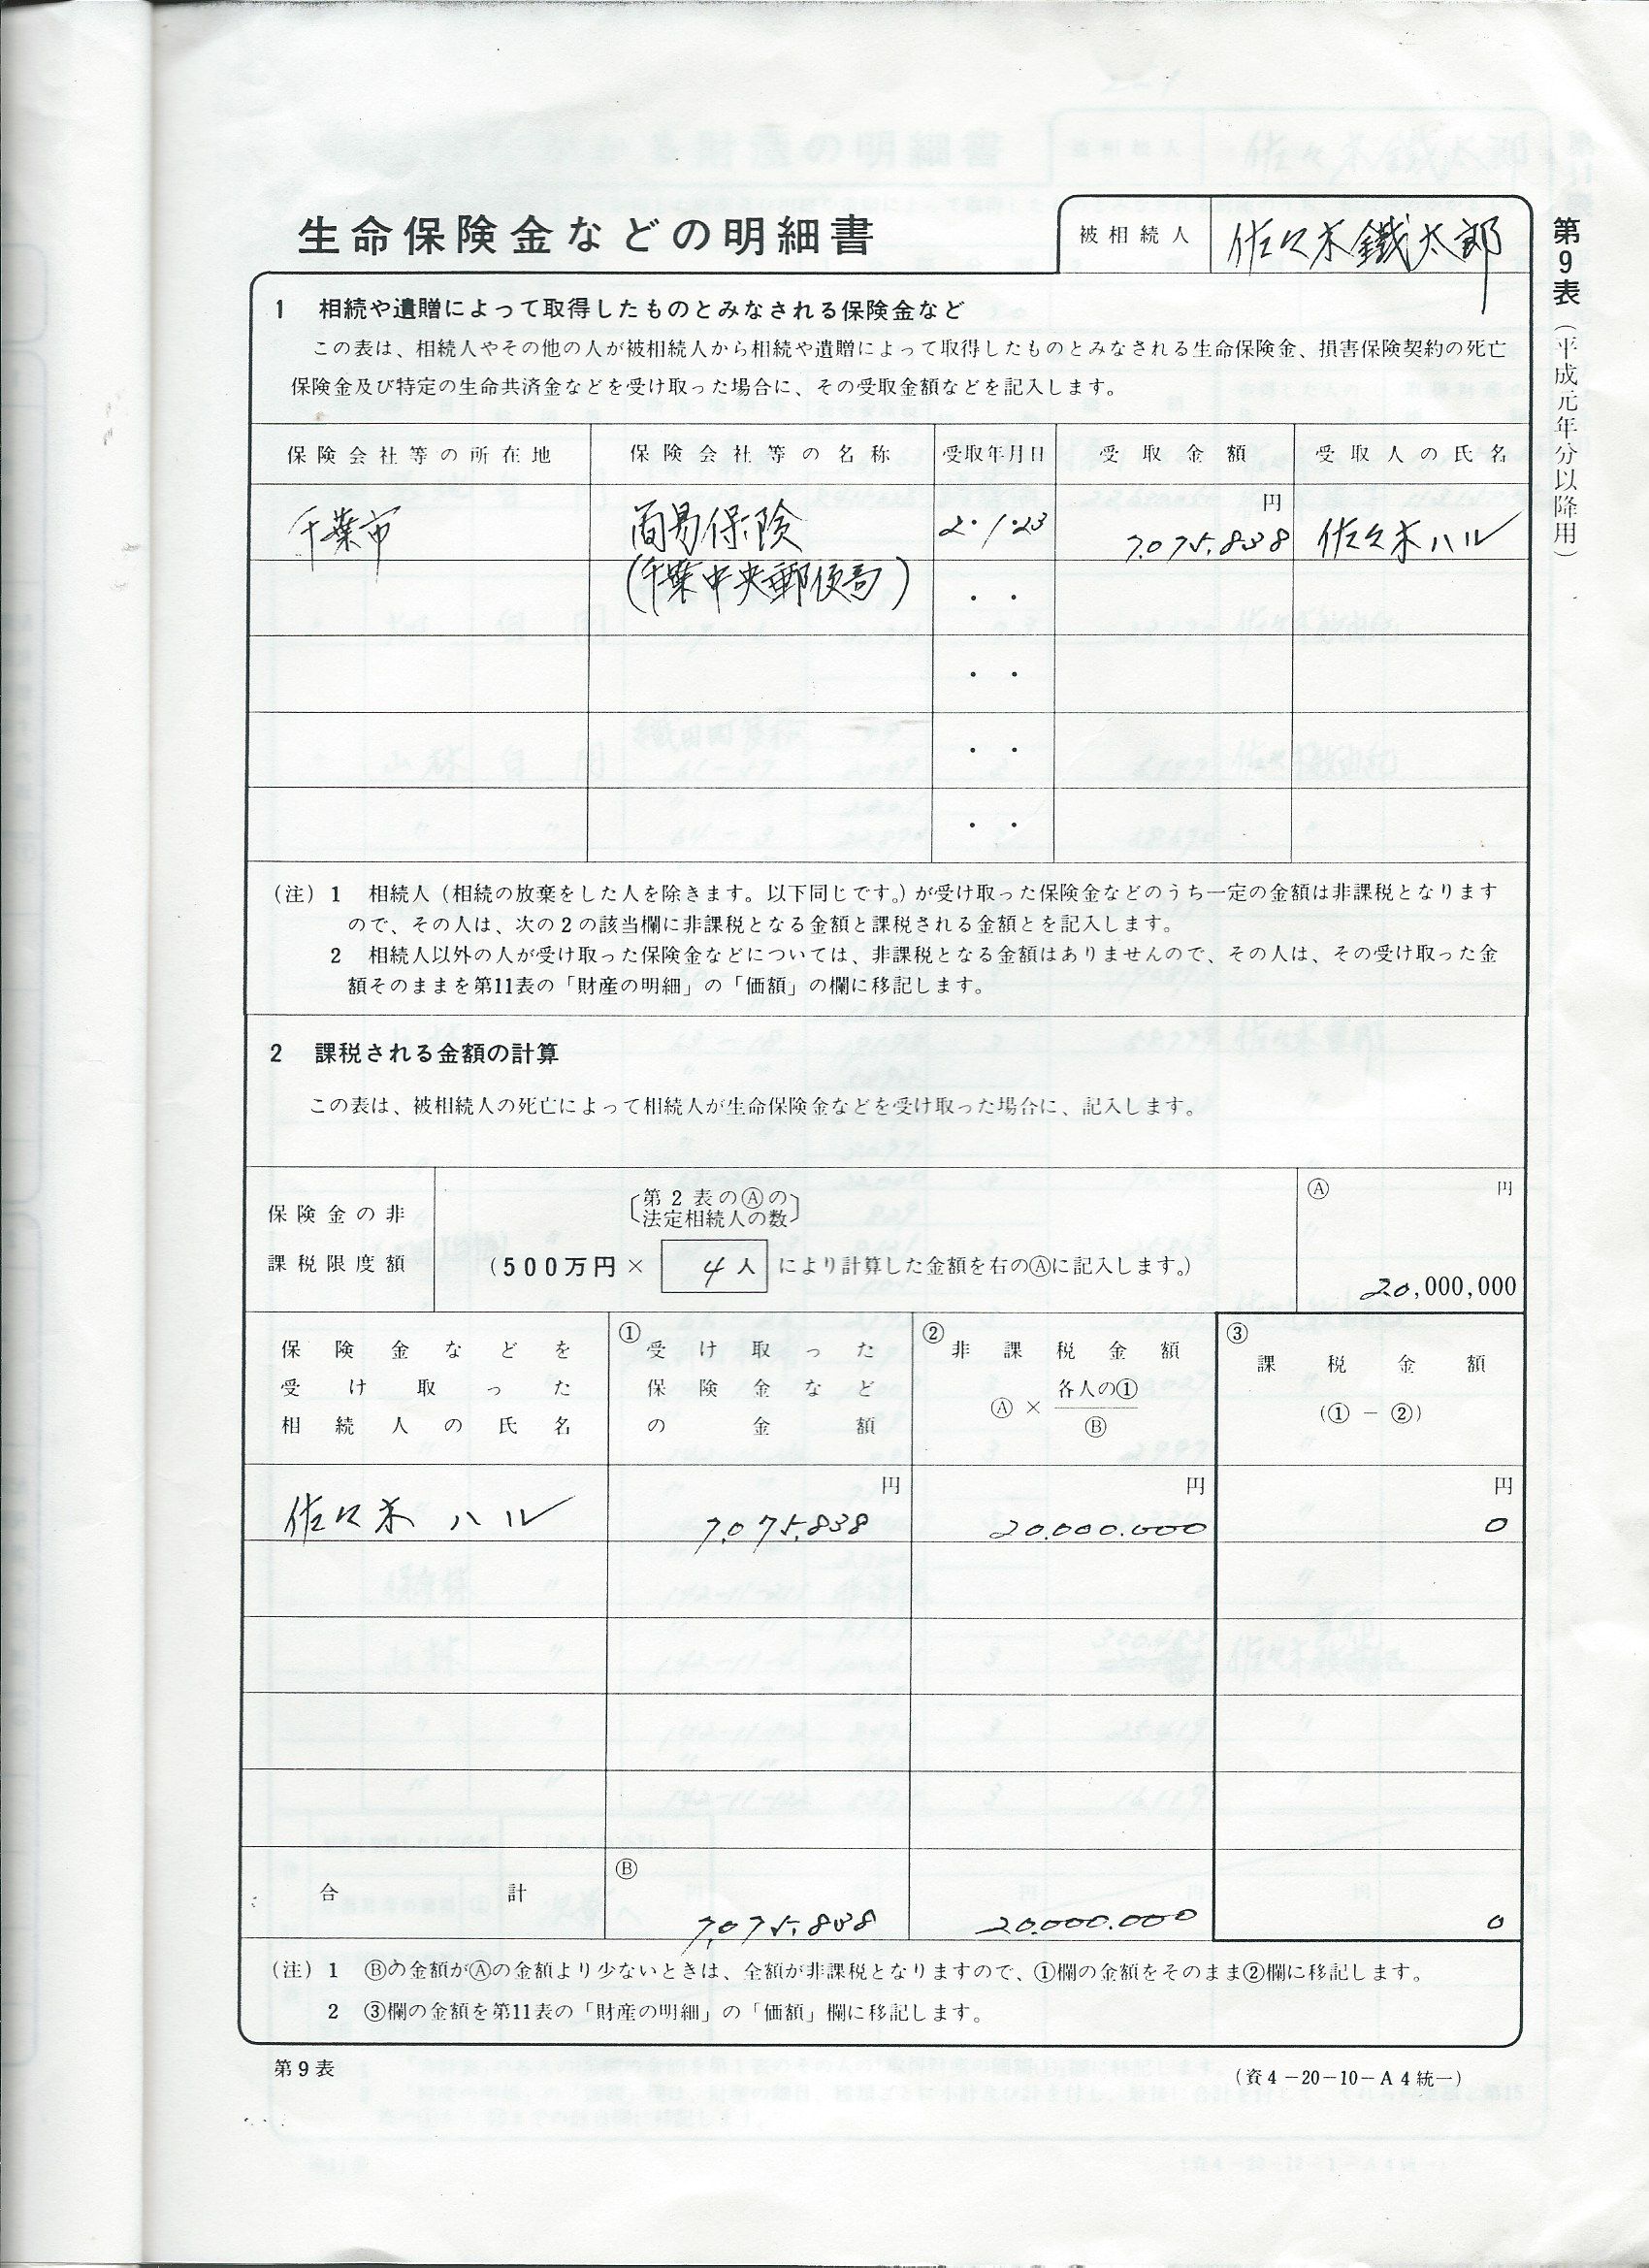 生命保険金などの明細書
被相続人 佐々木鐵太郎
第9表(平成元年分以降用)
1 相続や遺贈によって取得したものとみなされる保険金など
この表は、相続人やその他の人が被相続人から相続や遺贈によって取得したものとみなされる生命保険金、損害保険契約の死亡
保険金及び特定の生命共済金などを受け取った場合に、その受取金額などを記入します。
保険会社等の所在地 保険会社等の名称 受取年月日 受取金額 受取人の氏名
千葉市 簡易保険 2・1・23 7,075,838円 佐々木ハル
(千葉中央郵便局) ・・
・・
・・
・・
(注) 1 相続人(相続の放棄をした人を除きます。以下同じです。)が受け取った保険金などのうち一定の金額は非課税となります
ので、その人は、次の2の該当欄に非課税となる金額と課税される金額とを記入します。
2 相続人以外の人が受け取った保険金などについては、非課税となる金額はありませんので、その人は、その受け取った金
額そのままを第11表の「財産の明細」の「価額」の欄に移記します。
2 課税される金額の計算
この表は、被相続人の死亡によって相続人が生命保険金などを受け取った場合に、記入します。
保険金の非
課税限度額
〔第2表のⒶの
法定相続人の数〕
(500万円× 4人 により計算した金額を右のⒶに記入します。)
Ⓐ 円
20,000,000
保険金などを
受け取った
相続人の氏名
① 受け取った
保険金など
の金額
② 非課税金額
Ⓐ × 各人の①
Ⓑ
③ 課税金額
(① － ②)
佐々木 ハル 7,075,838円 20,000,000円 0円
合計 Ⓑ 7,075,838 20,000,000 0
(注) 1 Ⓑの金額がⒶの金額より少ないときは、全額が非課税となりますので、①欄の金額をそのまま②欄に移記します。
2 ③欄の金額を第11表の「財産の明細」の「価額」欄に移記します。
第9表
(資4－20－10－A4統一)